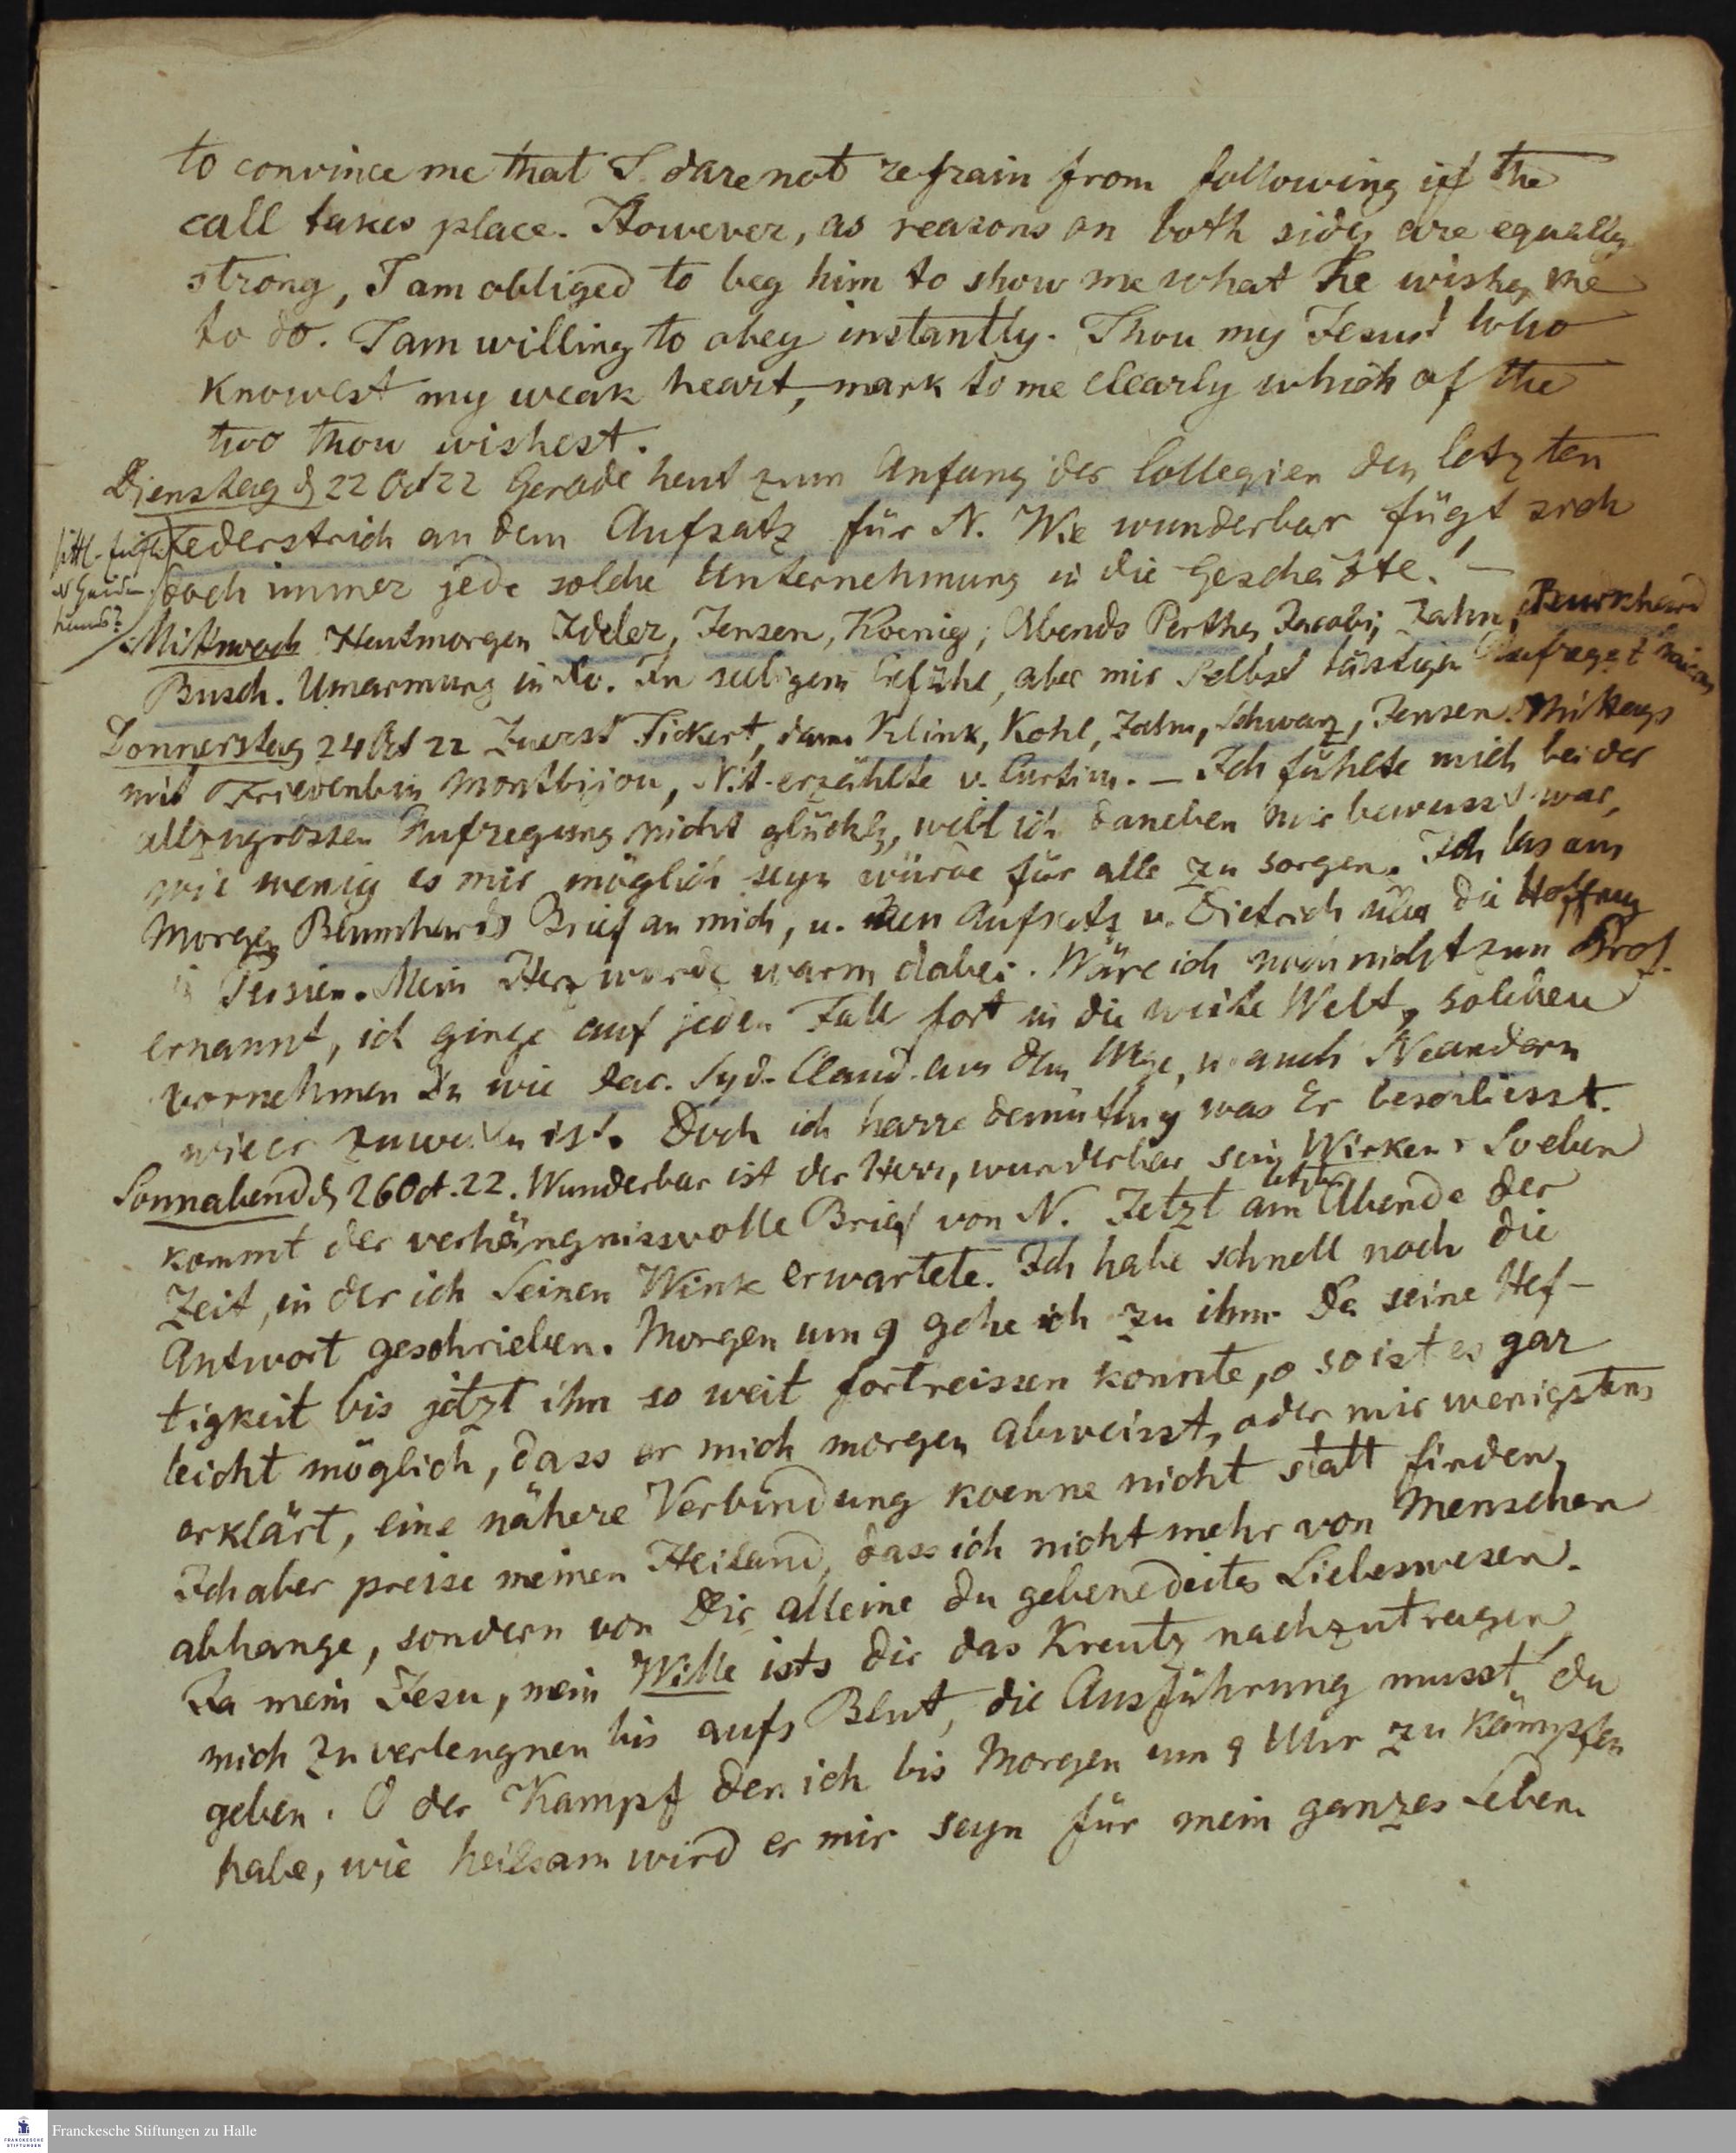 to convince me that I dare not refrain from following if the
call takes place. However, as reasons on both sides are equally
strong, I am obliged to beg him to show me what he wishes me
to do. I am willing to obey instantly. Thou my Jesus! who
knowest my weak heart, mark to me clearly which of the
two thou wishest.
Dienstag d 22 Oct 22 Gerade heut zum Anfang der Collegien den letzten
Federstrich an dem Aufsatz für N. Wie wunderbar fügt sich
doch immer jede solche Unternehmung in die Geschäfte! –
Mittwoch Heutmorgen Ideler, Jensen, Koenig; Abends Perthes, Jacobi, Zahn, Burkhard
Busch. Umarmung in Xo. In seeligem Gefühl, aber mir selbst lästiger Aufregt
Donnerstag 24 Oct 22 Zuerst Tickert, dann Klink, Kohl, Zahn, Schwarz, Jensen. Mittags
mit Friedenb in Montbijou, N.t. erzählte v. Curtius. – Ich fühlte mich bei der
allzugrossen Aufregung nicht glückl, weil ich daneben mir bewusst war,
wie wenig es mir möglich seyn würde für alle zu sorgen. Ich las am
Morgen Blumhards Brief an mich, u. den Aufsatz v. Dietrich über die Hoffnung
in Persien. Mein Herz wurde warm dabei. Wäre ich noch nicht zum Prof.
ernannt, ich ginge auf jeden Fall fort in die weite Welt, solchen
vornehmen Xn wie Jac. Syd. Claud. aus dem Wege, u. auch Neandern
wie er zuweilen ist. Doch ich harre demüthig was Er beschliesst.
Sonnabend d 26 Oct. 22. Wunderbar ist der Herr, wunderbar sein Wirken. Soeben
kommt der verhängnissvolle Brief von N. Jetzt am letzten Abende der
Zeit, in der ich Seinen Wink erwartete. Ich habe schnell noch die
Antwort geschrieben. Morgen um 9 gehe ich zu ihm. Da seine Hef-
tigkeit bis jetzt ihn so weit fortreissen konnte, so ist es gar
leicht möglich, dass er mich morgen abweisst, oder mir wenigstens
erklärt, eine nähere Verbindung koenne nicht statt finden.
Ich aber preise meinen Heiland, dass ich nicht mehr von Menschen
abhange, sondern von Dir alleine du gebenedeites Liebeswesen.
Ja mein Jesu, mein Wille ists dir das Kreutz nachzutragen
mich zu verleugnen bis aufs Blut, die Ausführung musst du
geben. O der Kampf den ich bis Morgen um 9 Uhr zu kämpfen
habe, wie heilsam wird er mir seyn für mein ganzes Leben.
Franckesche Stiftungen zu Halle